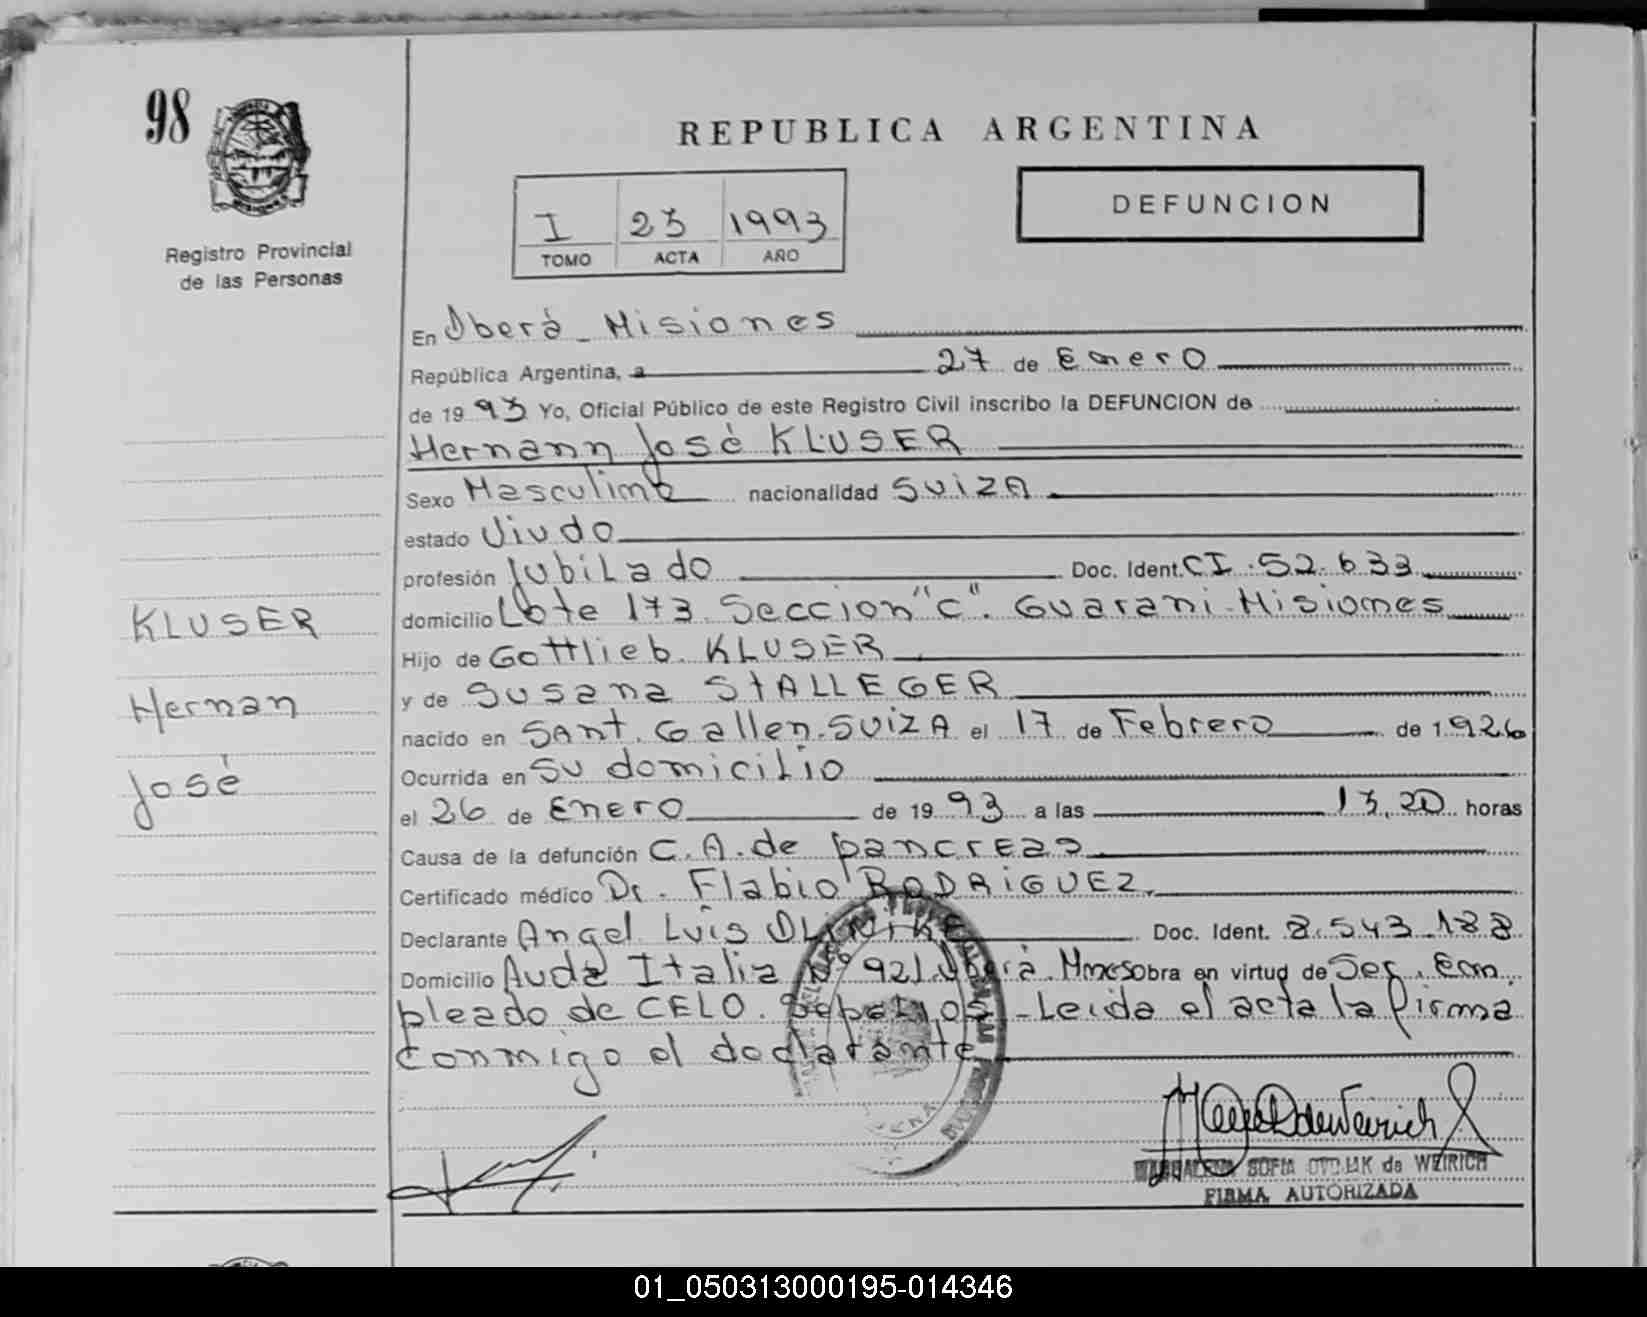 98
REPUBLICA ARGENTINA
I 23 1993
TOMO ACTA AÑO
DEFUNCION
Registro Provincial
de las Personas
En Oberá - Misiones
República Argentina, a 27 de Enero
de 1993 Yo, Oficial Público de este Registro Civil inscribo la DEFUNCION de
Hernann José KLUSER
Sexo Masculino nacionalidad SUIZA
estado Viudo
profesión Jubilado Doc. Ident. CI. 52.633
domicilio Lote 173 Seccion "C". Guarani - Misiones
KLUSER
Hijo de Gottlieb KLUSER
y de Susana STALLEGER
Hernan
nacido en SAnt. Gallen. SUIZA el 17 de Febrero de 1926
José
Ocurrida en Su domicilio
el 26 de Enero de 1993 a las 13,20 horas
Causa de la defunción C.A. de pancreas
Certificado médico Dr. Flabio RODRIGUEZ.
Declarante Angel Luis Doc. Ident. 8.543.188
Domicilio Avda Italia Nº 921 Oberá. Mnes obra en virtud de Ser. Em
pleado de CELO. Sepelios - Leida el acta la firma
conmigo el declarante
SOFIA de WEIRICH
FIRMA AUTORIZADA
01_050313000195-014346